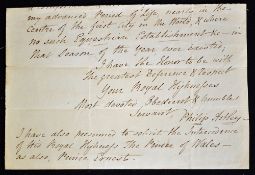 my advanced Period of Life, nearly in the
Centre of the first City in the World, & where
no such Equestrian Establishment &c — in
that Season of the Year ever existed;
I have the Honor to be with
the greatest Deference & Respect
Your Royal Highness's
Most devoted, Obedient & humble
Servant
Philip Astley
I have also presumed to solicit the Subscription
of His Royal Highness The Prince of Wales —
as also, Prince Ernest.